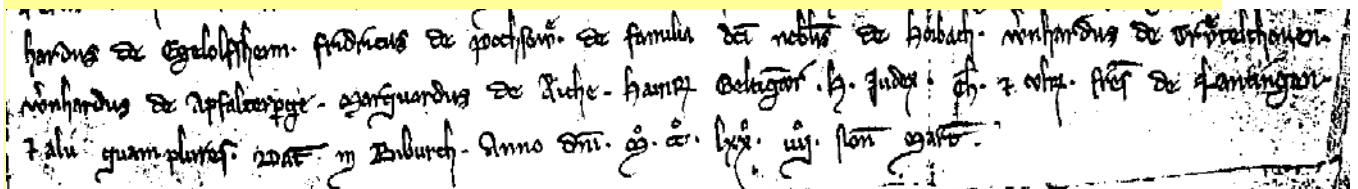 hardus de Egelolfsheim. fridricus de pochsow. de familia dci nobis de Haibach. wernhardus de Trvtelchouen.
wernhardus de Apfalterpge. Marquardus de Aiche. Hainr. Geltigar. H. Judex. Ch. 7 . fres de Lantingen
7 alii quam plures. Dat in Biburch. Anno dni. M. CC. lxx. iiij. Non Mart.